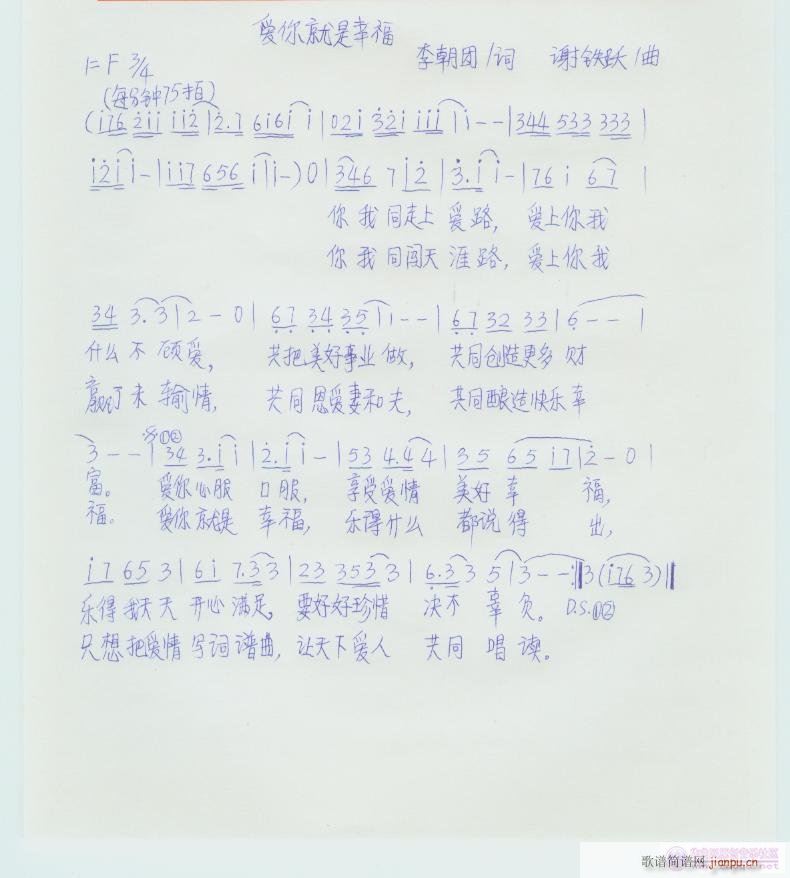 爱你就是幸福
1=F 3/4 李朝团/词 谢铁跃/曲
(每分钟75拍)
(i76 2ii ii2|2.7 6i6i i|02i 32i iii|i--|344 533 333|
i2ii-|ii7 656 i|i-)0|346 7 i2|3.i i-|76 i 67|
你我同走上爱路，爱上你我
你我同闯天涯路，爱上你我
34 3.3|2-0|67 34 35|1--|67 32 33|6--|
什么不顾爱，共把美好事业做，共同创造更多财
赢订未输情，共同恩爱妻和夫，共同酿造快乐幸
3--|34 3.i i|2.i i-|53 4.4 4|35 65 i7|2-0|
富。爱你心服口服，享受爱情美好幸福，
福。爱你就是幸福，乐得什么都说得出，
i7 65 3|6i 7.3 3|23 353 3|6.3 3 5|3--:‖3(i76 3)‖
乐得我天天开心满足。要好好珍惜决不辜负。D.S.①②
只想把爱情写词谱曲，让天下爱人共同唱读。
歌谱简谱网 jianpu.cn